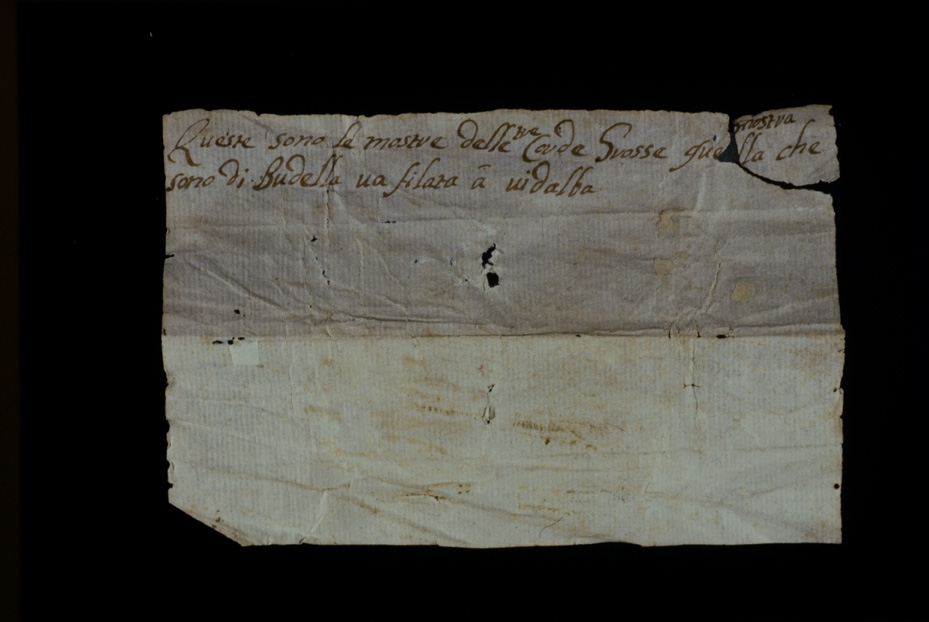 Queste sono le mostre delle tre Corde Grosse quella mostra che
sono di Budella va filata à vidalba